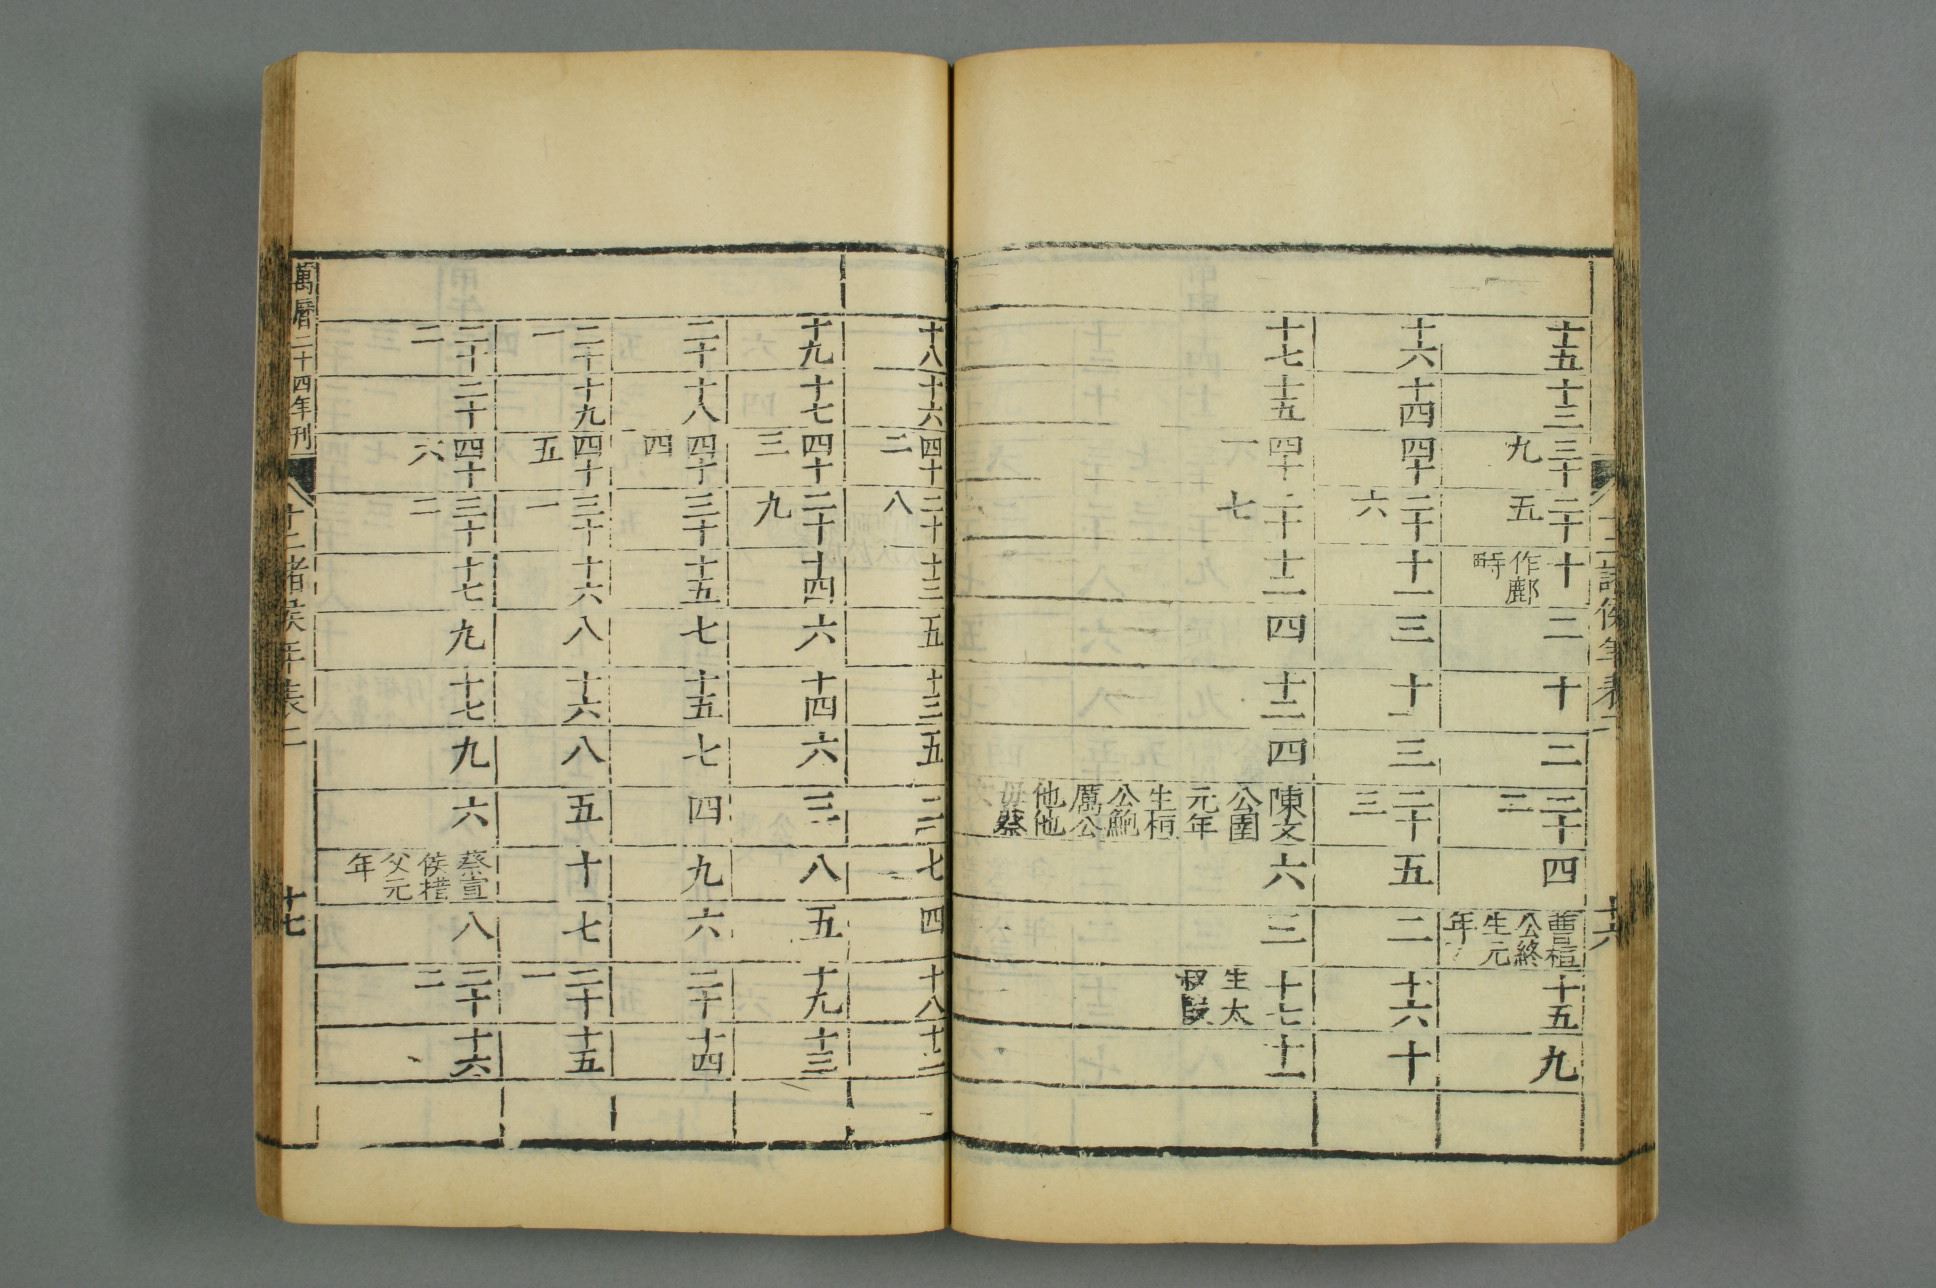 十二諸侯年表二 十六
十五 十三 三十九 二十五 十 作鄜畤 二 十 二 二十二 四 曹桓公終生元年 十五 九
十六 十四 四十 二十六 十一 三 十一 三 二十三 五 二 十六 十
十七 十五 四十一 二十七 十二 四 十二 四 陳文公圉元年生桓公鮑厲公他他母蔡 六 三 十七 生太叔段 十一
十八 十六 四十二 二十八 十三 五 十三 五 二 七 四 十八 十二
十九 十七 四十三 二十九 十四 六 十四 六 三 八 五 十九 十三
二十 十八 四十四 三十 十五 七 十五 七 四 九 六 二十 十四
二十一 十九 四十五 三十一 十六 八 十六 八 五 十 七 二十一 十五
二十二 二十 四十六 三十二 十七 九 十七 九 六 蔡宣侯楷父元年 八 二十二 十六
萬曆二十四年刊 十二諸侯年表二 十七